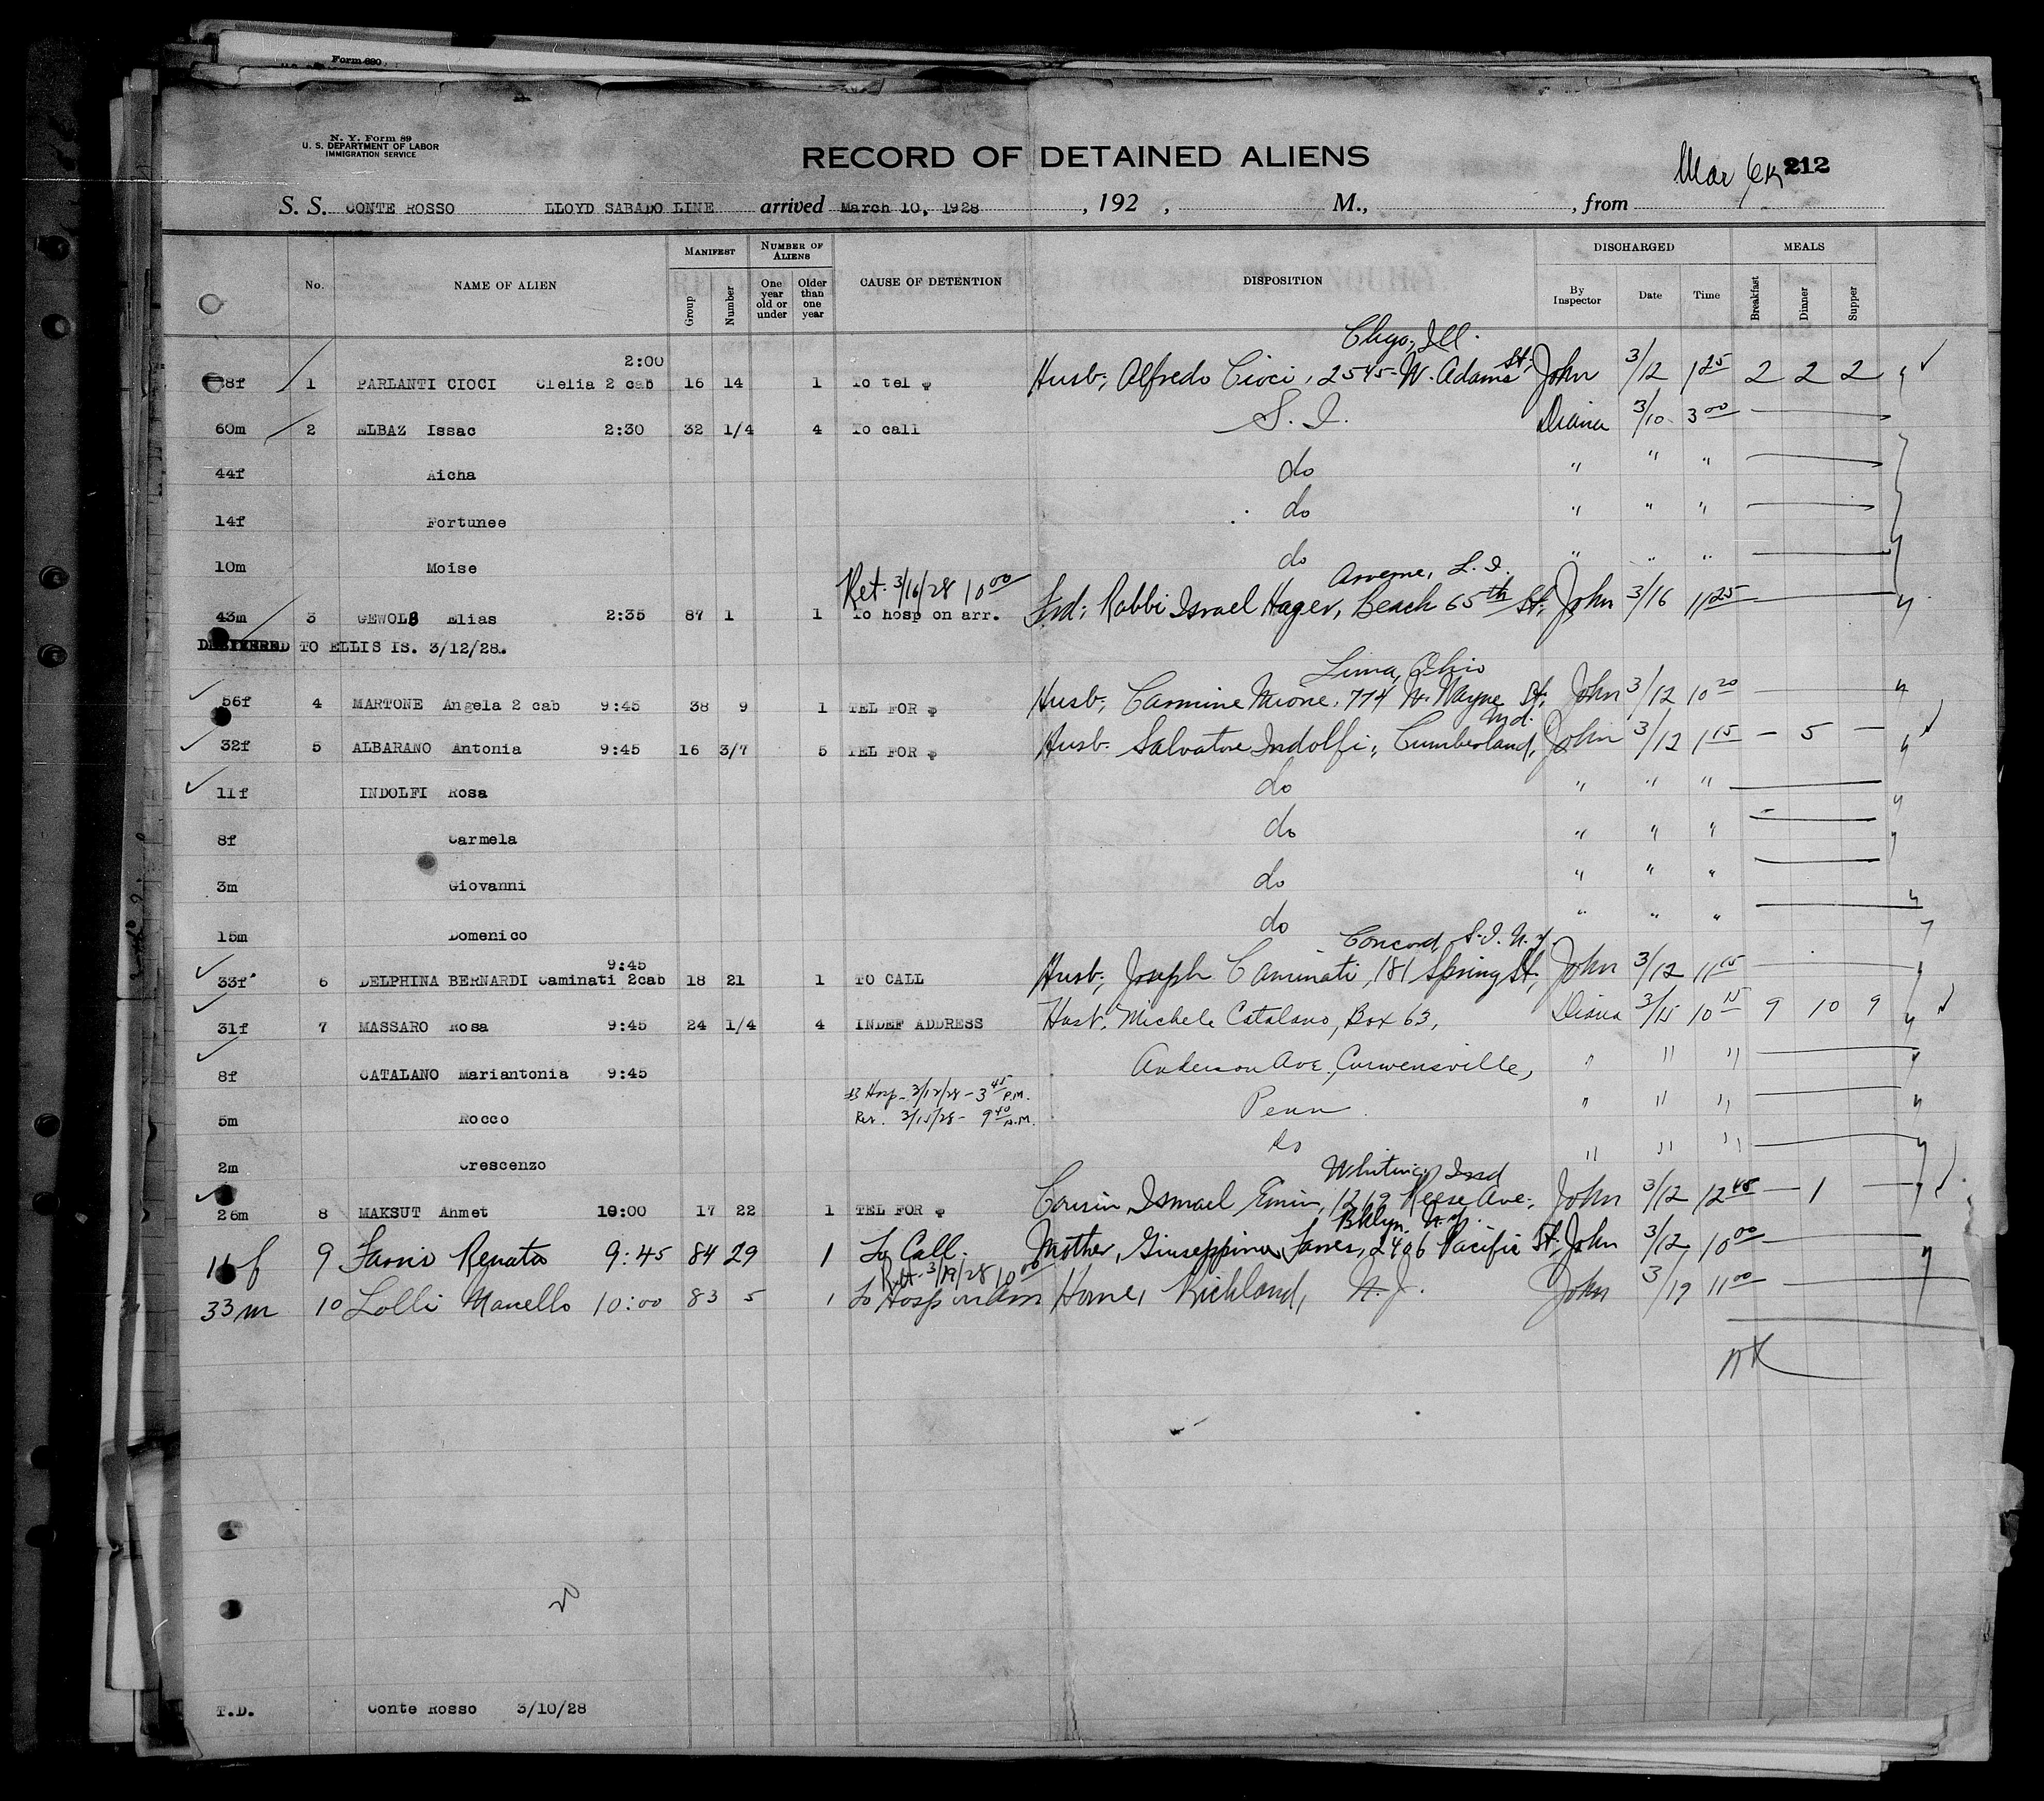 Form 890
N. Y. Form 89
U. S. DEPARTMENT OF LABOR
IMMIGRATION SERVICE
RECORD OF DETAINED ALIENS
Mar 212
S. S. CONTE ROSSO LLOYD SABADO LINE arrived March 10, 1928 , 192 , M., , from
No. NAME OF ALIEN MANIFEST NUMBER OF ALIENS CAUSE OF DETENTION DISPOSITION DISCHARGED MEALS
Group Number One year old or under Older than one year By Inspector Date Time Breakfast Dinner Supper
2:00 Chgo, Ill.
8f 1 PARLANTI CIOCI Clelia 2 cab 16 14 1 To tel Husb; Alfredo Cioci, 2545 W. Adams St; John 3/12 1 25 2 2 2
60m 2 ELBAZ Issac 2:30 32 1/4 4 To call S. I. Diana 3/10 3 00
44f Aicha do " " "
14f Fortunee do " " "
10m Moise do " " "
Ret. 3/16/28 10 00 Arverne, L. I.
43m 3 GEWOLB Elias 2:35 87 1 1 To hosp on arr. Frd; Rabbi Israel Hager, Beach 65th St; John 3/16 11 25
TO ELLIS IS. 3/12/28.
Lima, Ohio
56f 4 MARTONE Angela 2 cab 9:45 38 9 1 TEL FOR Husb; Carmine 774 W. Wayne St; John 3/12 10 20
Md.
32f 5 ALBARANO Antonia 9:45 16 3/7 5 TEL FOR Husb. Salvatore Indolfi, Cumberland, John 3/12 1 15 — 5 —
11f INDOLFI Rosa do " " "
8f Carmela do " " "
3m Giovanni do " " "
15m Domenico do " " "
9:45 Concord, S. I. N. Y.
33f 6 DELPHINA BERNARDI Caminati 2cab 18 21 1 TO CALL Husb; Joseph Caminati, 181 Spring St, John 3/12 11 15
31f 7 MASSARO Rosa 9:45 24 1/4 4 INDEF ADDRESS Husb. Michele Catalano, Box 63, Diana 3/15 10 15 9 10 9
8f CATALANO Mariantonia 9:45 Anderson Ave., Curwensville, " " "
Hosp - 3/12/28 - 3 45 P.M.
5m Rocco Ret. 3/15/28 - 9 40 A.M. Penn " " "
2m Crescenzo do " " "
Whiting Ind
26m 8 MAKSUT Ahmet 10:00 17 22 1 TEL FOR Cousin Ismael Emin, 1269 Reese Ave; John 3/12 12 45 — 1 —
Bklyn. N.Y.
f 9 Renata 9:45 84 29 1 To Call. Mother, Giuseppina 2406 Pacific St; John 3/12 10 00
Ret. 3/19/28 10 00
33m 10 Lolli Manello 10:00 83 5 1 To Hosp on arr Home, Richland, N. J. John 3/19 11 00
T.D. Conte Rosso 3/10/28